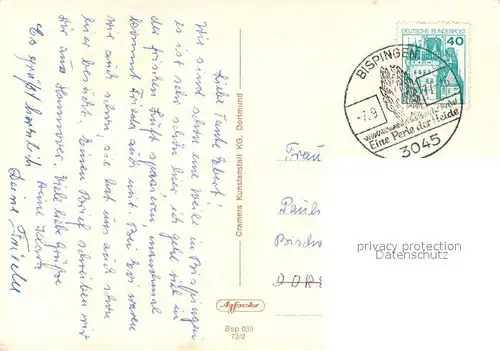 Liebe Tante Ebert!
Wir sind schon eine Weile in Bispingen
es ist sehr schön hier ich gehe viel in
der frischen Luft spazieren, manchmal
kommt Frieda auch mit. Bei waren
wir auch schon, sie hat uns auch schon
hier besucht. Einen Brief schreiben wir
Dir aus Hannover. Viele liebe Grüße
Deine
Es grüßt herzlich
Deine
Cramers Kunstanstalt KG. Dortmund
Agfacolor
Bsp 039
73/2
DEUTSCHE BUNDESPOST
40
BISPINGEN
-7.9
Eine Perle der Heide
3045
Frau
Pauls
Bisch
DOR
privacy protection
Datenschutz